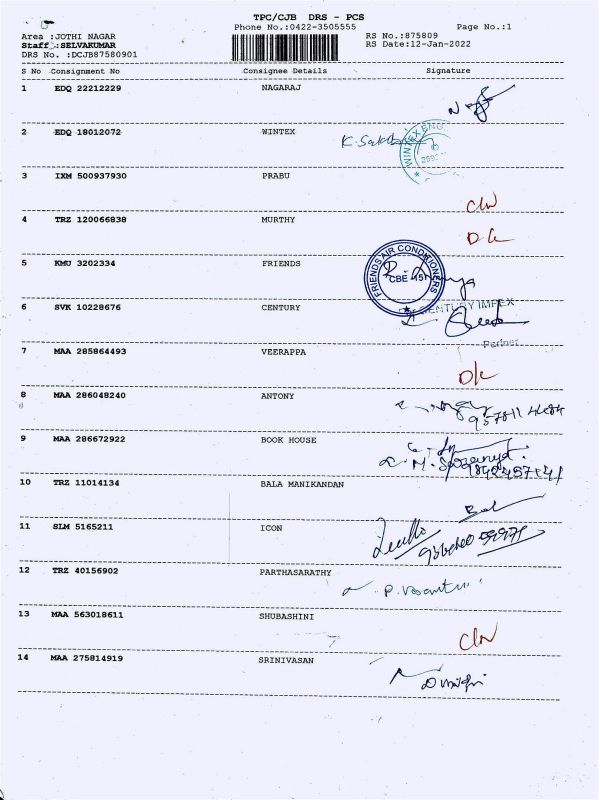 TPC/CJB DRS - PCS
Phone No.:0422-3505555
Page No.:1
Area :JOTHI NAGAR
RS No.:875809
Staff :SELVAKUMAR
RS Date:12-Jan-2022
DRS No. :DCJB87580901
S No Consignment No Consignee Details Signature
1 EDQ 22212229 NAGARAJ
2 EDQ 18012072 WINTEX
WINTEX ENG
3 IXM 500937930 PRABU
4 TRZ 120066838 MURTHY
5 KMU 3202334 FRIENDS
FRIENDS AIR CONDITIONERS
CBE
6 SVK 10228676 CENTURY
CENTURY IMPEX
Partner
7 MAA 285864493 VEERAPPA
8 MAA 286048240 ANTONY
9 MAA 286672922 BOOK HOUSE
10 TRZ 11014134 BALA MANIKANDAN
11 SLM 5165211 ICON
12 TRZ 40156902 PARTHASARATHY
13 MAA 563018611 SHUBASHINI
14 MAA 275814919 SRINIVASAN